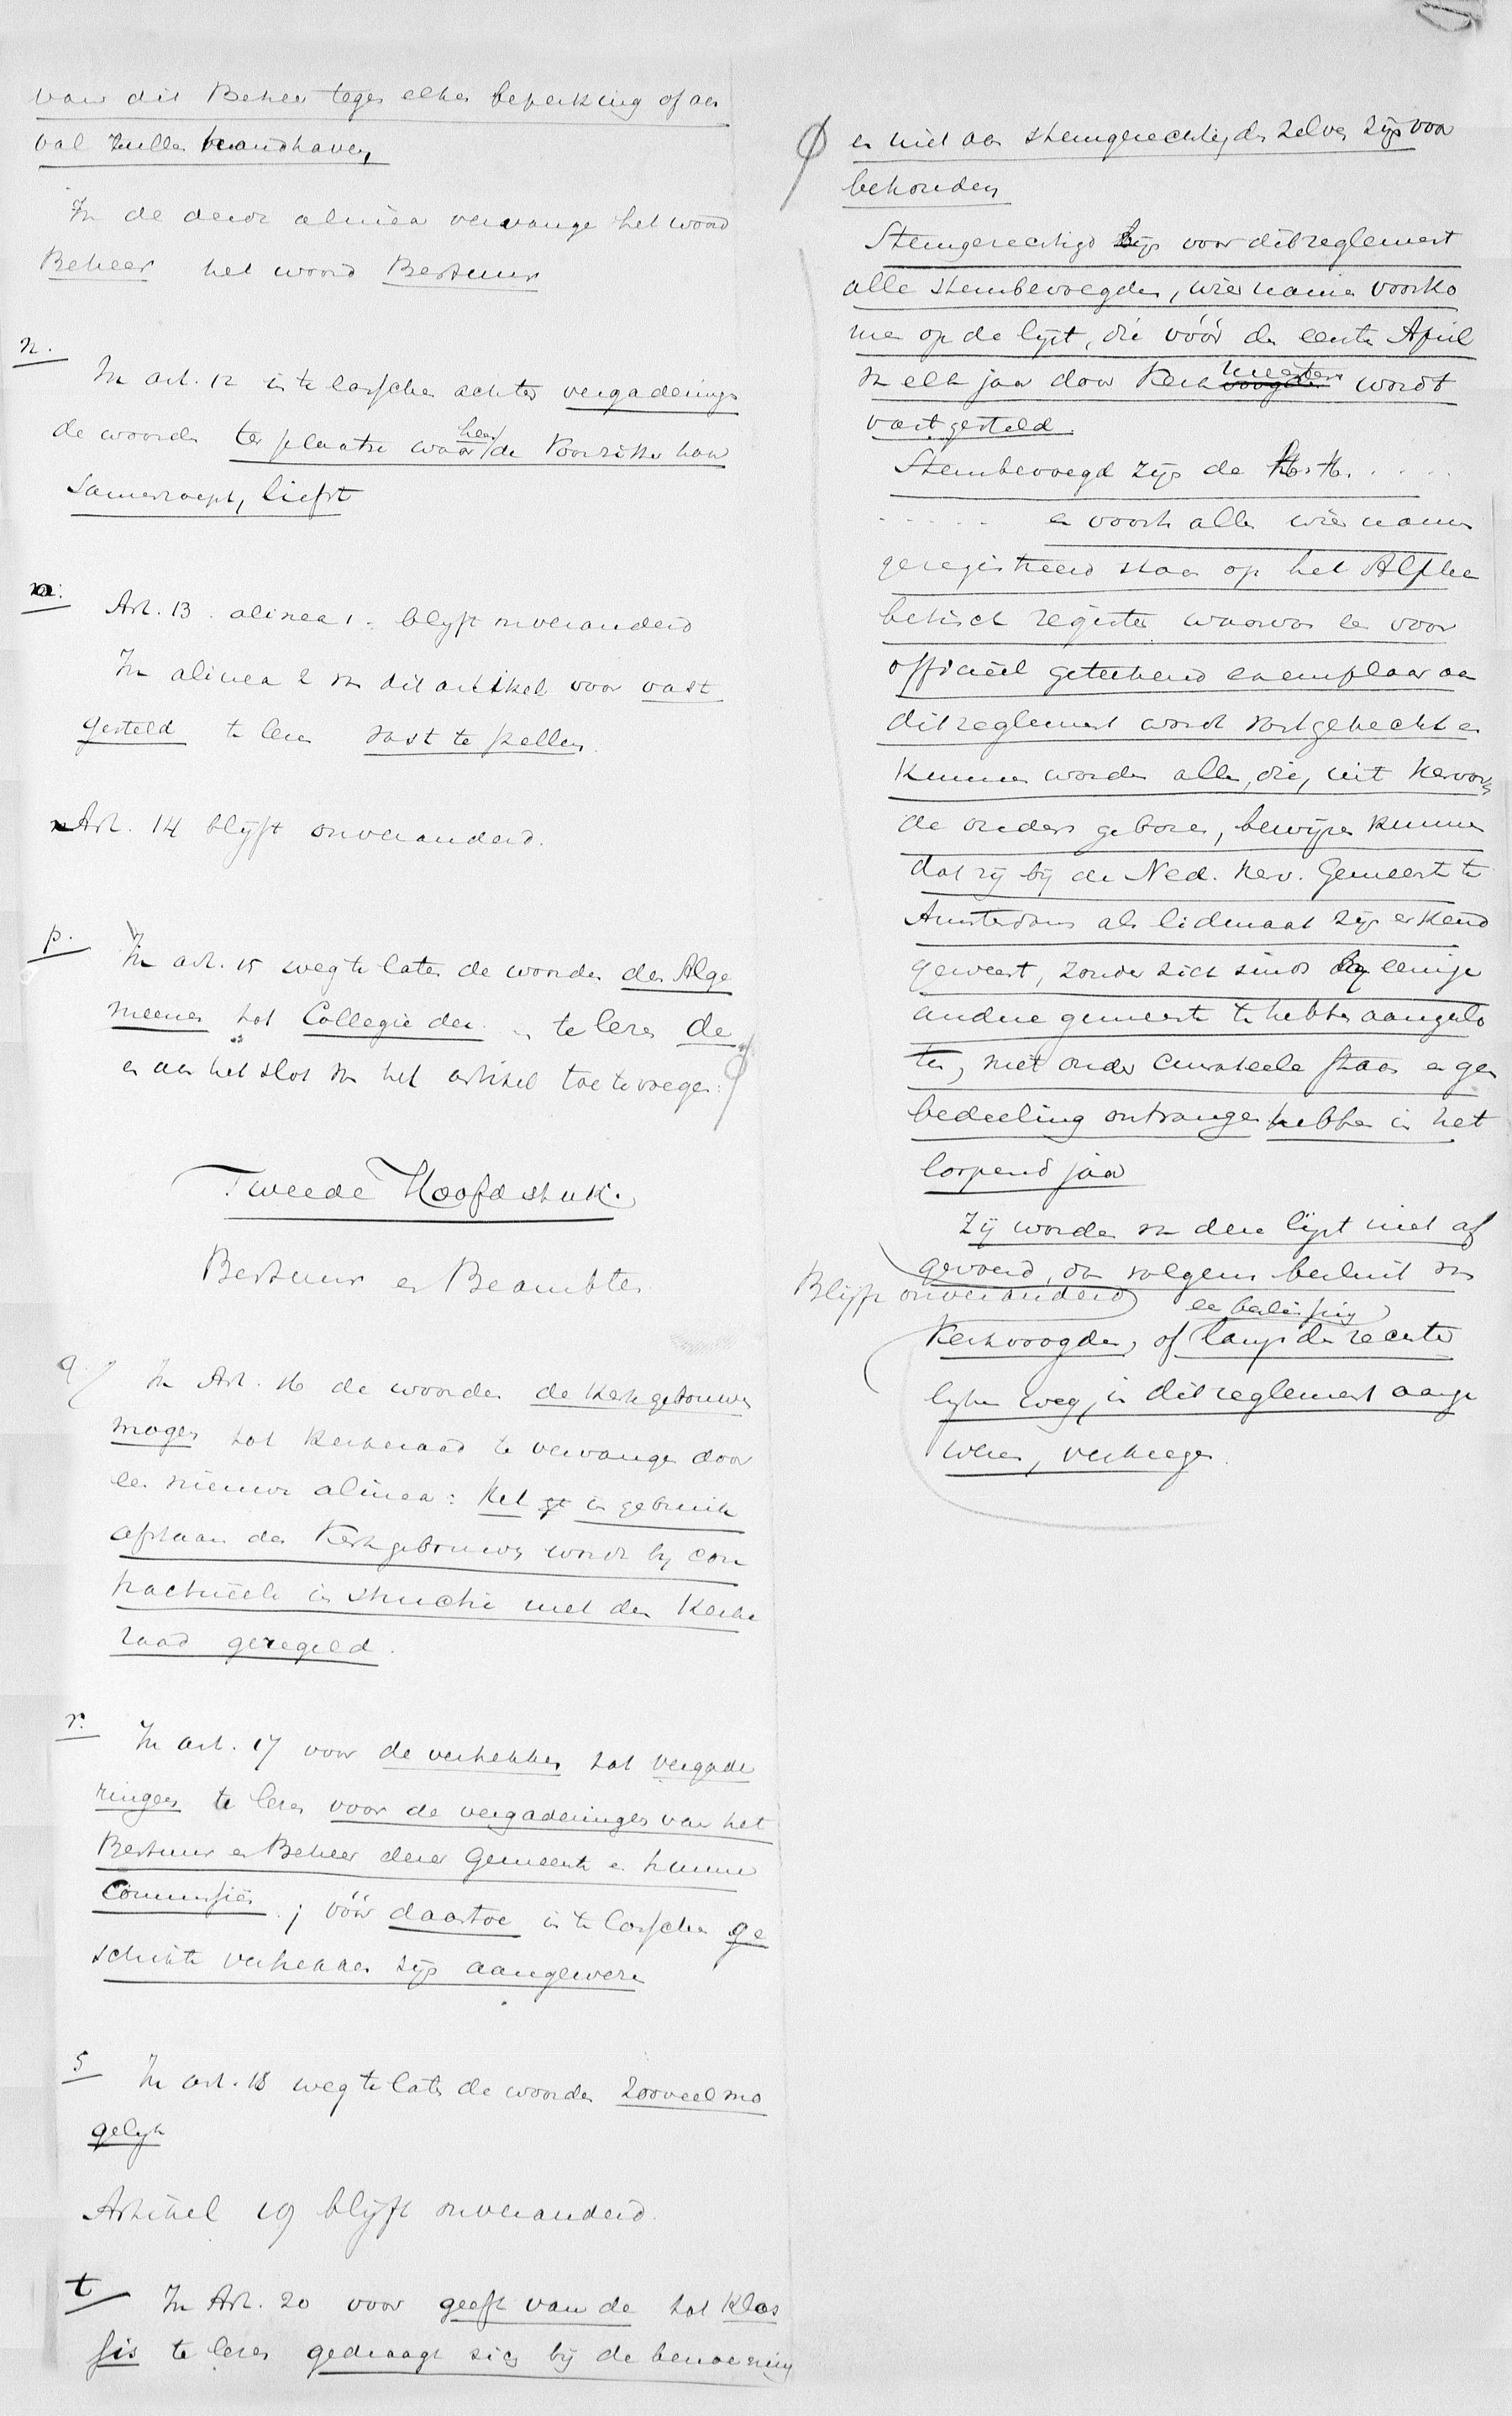 van dit Beheer tegen elke beperking of aan
val zullen handhaven,
In de derde alinea vervange het woord
Beheer het woord Bestuur
n.
In art. 12 in te lasschen achter vergaderings
de woorden ter plaatse waar de Voorzitter haar
heen
samenroept, liefst
o.
Art. 13. alinea 1. blijft onveranderd
In alinea 2 van dit artikel voor vast
gesteld te lezen vast te stellen.
Art. 14 blijft onveranderd.
p.
In art. 15 weg te laten de woorden der Alge
meenen tot Collegie der. te lezen de
en aan het slot van het artikel toe te voegen:
Tweede Hoofdstuk.
Bestuur en Beambten
q.
In Art. 16 de woorden de kerkgebouwen
mogen tot Kerkeraad te vervangen door
een nieuwe alinea: Het in gebruik
afstaan der Kerkgebouwen wordt bij con
tractueele instructie met den Kerke
raad geregeld.
r.
In art. 17 voor de vertrekken tot vergade
ringen te lezen voor de vergaderingen van het
Bestuur en Beheer dezer Gemeente en hunne
Commissiën; vóór daartoe in te lasschen ge
schikte vertrekken zijn aangewezen
s
In art. 18 weg te laten de woorden zooveel mo
gelijk
Artikel 19 blijft onveranderd.
t
In Art. 20 voor geeft van de tot Klas
sis te lezen gedraagt zich bij de benoeming
en niet aan stemgerechtigden zelven zijn voor
behouden
Stemgerechtigd zijn voor dit reglement
alle stembevoegden, wier namen voorko
men op de lijst, die vóór den eersten April
van elk jaar door Kerkvoogden wordt
meesters
vastgesteld.
Stembevoegd zijn de H.H. . . . .
. . . . . en voorts allen wier namen
geregistreerd staan op het Alpha
betisch register waarvan een voor
officieel geteekend exemplaar aan
dit reglement wordt vastgehecht en
kunnen worden allen, die, uit Hervorm
de ouders geboren, bewijzen kunnen
dat zij bij de Ned. Herv. Gemeente te
Amsterdam als lidmaat zijn erkend
geweest, zonder zich sinds bij eenige
andere gemeente te hebben aangeslo
ten, niet onder curateele staan en geen
bedeeling ontvangen hebben in het
loopend jaar
Zij worden van deze lijst niet af
gevoerd, dan volgens besluit van
Blijft onveranderd
een beslissing
Kerkvoogden, of langs den rechter
lijken weg, in dit reglement aange
wezen, verkregen.